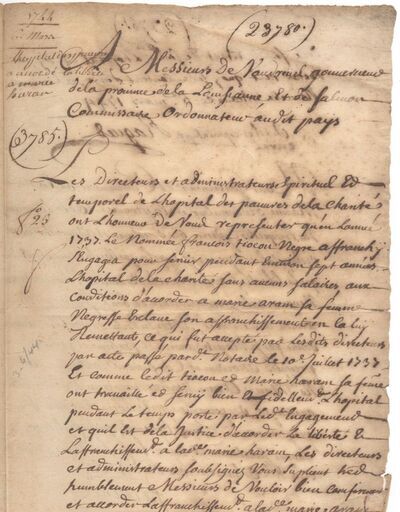 1744
(23780.)
A Messieurs de Vaudreuil, gouverneur
de la province de la Louisianne, et de Salmon
Commissaire Ordonnateur audit pays
(3785.)
Les Directeurs et administrateurs Spirituel Et
temporel de Lhopital des pauvres de la Charité
ont Lhonneur de Vous representer qu'en Lannée
1737. Le Nommée francois tiocou Negre affranchy
S'Engagea pour servir pendant Environ Sept années
Lhopital de la charité sans aucuns salaires aux
Conditions d'acorder a marie aram sa femme
Negresse Esclave son affranchissement en la luy
Remettant, ce qui fut accepté par Les dits directeurs
par acte passé pard.t Notaire le 10.e Juillet 1737
Et comme ledit tiocou et Marie haram sa femme
ont travaillé et servy bien et fidellem.t L'hopital
pendant Le temps porté par Led.t Engagement
et quil est de la Justice d'acorder la liberté &
Laffranchissem.t a lad.e marie haram, Les directeurs
et administrateurs soussignez Vous suplient tres
humblement Messieurs de Vouloir bien confirmer
et accorder Laffranchissem.t a lad.e marie aram